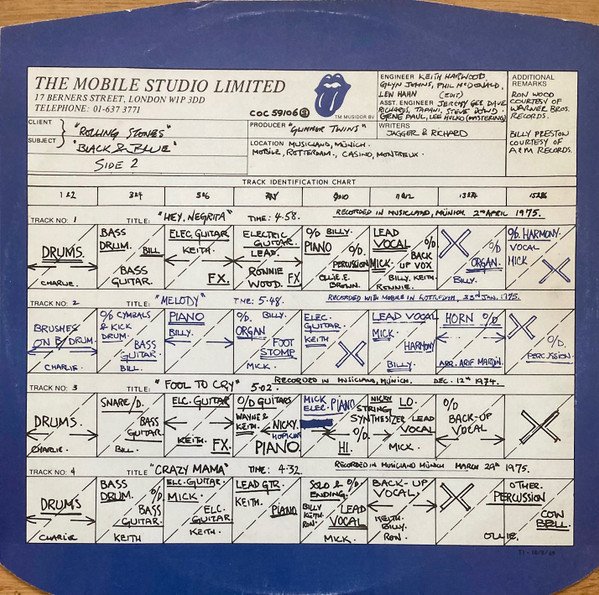 THE MOBILE STUDIO LIMITED
17 BERNERS STREET, LONDON W1P 3DD
TELEPHONE: 01-637 3771
COC 59106
TM MUSIDOR BV
ENGINEER KEITH HARWOOD,
GLYN JOHNS, PHIL McDONALD,
LEW HAHN
ASST. ENGINEER JEREMY GEE, DAVE
RICHARDS, TAPANI, STEVE DOWD
GENE PAUL, LEE HULKO (MASTERING)
WRITERS
JAGGER & RICHARD
ADDITIONAL
REMARKS
RON WOOD
COURTESY OF
WARNER BROS.
RECORDS.
BILLY PRESTON
COURTESY OF
A&M RECORDS.
CLIENT "ROLLING STONES"
SUBJECT "BLACK & BLUE"
SIDE 2
PRODUCER "GLIMMER TWINS"
LOCATION MUSICLAND, MÜNICH.
MOBILE, ROTTERDAM, CASINO, MONTREUX.
TRACK IDENTIFICATION CHART
1&2 3&4 5&6 7&8 9&10 11&12 13&14 15&16
TRACK NO: 1 TITLE: "HEY, NEGRITA" TIME: 4.58. RECORDED IN MUSICLAND, MÜNICH 2nd APRIL 1975.
DRUMS.
CHARLIE.
BASS DRUM.
BILL
BASS GUITAR.
ELEC. GUITAR
KEITH.
FX.
ELECTRIC GUITAR.
LEAD.
RONNIE WOOD.
FX
O/D BILLY.
PIANO
O/D PERCUSSION
OLLIE E. BROWN.
LEAD VOCAL
MICK.
O/D BACK UP VOX
BILLY, KEITH
RONNIE.
O/D ORGAN.
BILLY.
O/D. HARMONY.
VOCAL
MICK
TRACK NO: 2 TITLE: "MELODY" TIME: 5-48. RECORDED WITH MOBILE IN ROTTERDAM, 23rd JAN. 1975.
BRUSHES
ON B/DRUM.
CHARLIE.
O/D CYMBALS
& KICK DRUM.
BASS GUITAR.
BILL.
PIANO
BILLY.
O/D. BILLY.
ORGAN
FOOT STOMP
MICK.
ELEC. GUITAR
KEITH
LEAD VOCAL
MICK.
HARMONY
BILLY.
HORN O/D
ARR. ARIF MARDIN.
O/D.
PERCUSSION.
TRACK NO: 3 TITLE: "FOOL TO CRY" 5.02. RECORDED IN MUSICLAND, MÜNICH. DEC. 12th 1974.
DRUMS.
CHARLIE.
SNARE/D.
BASS GUITAR.
BILL.
ELC. GUITAR
KEITH.
FX.
O/D GUITARS
WAYNE & KEITH.
NICKY HOPKINS
PIANO.
MICK
ELEC. PIANO
O/D
HI.
NICKY
STRING
SYNTHESIZER
LO.
LEAD VOCAL
MICK.
O/D
BACK-UP
VOCAL
TRACK NO: 4 TITLE "CRAZY MAMA" TIME: 4.32 RECORDED IN MUSICLAND MÜNICH MARCH 29th 1975.
DRUMS
CHARLIE
BASS DRUM.
O/D BASS GUITAR.
KEITH
ELC. GUITAR
MICK.
ELC. GUITAR
KEITH.
LEAD GTR.
KEITH.
PIANO
SOLO & ENDING.
BILLY
KEITH
RON.
LEAD VOCAL
MICK.
BACK-UP
VOCAL.
KEITH.
BILLY.
RON
OTHER.
PERCUSSION
COW BELL
OLLIE.